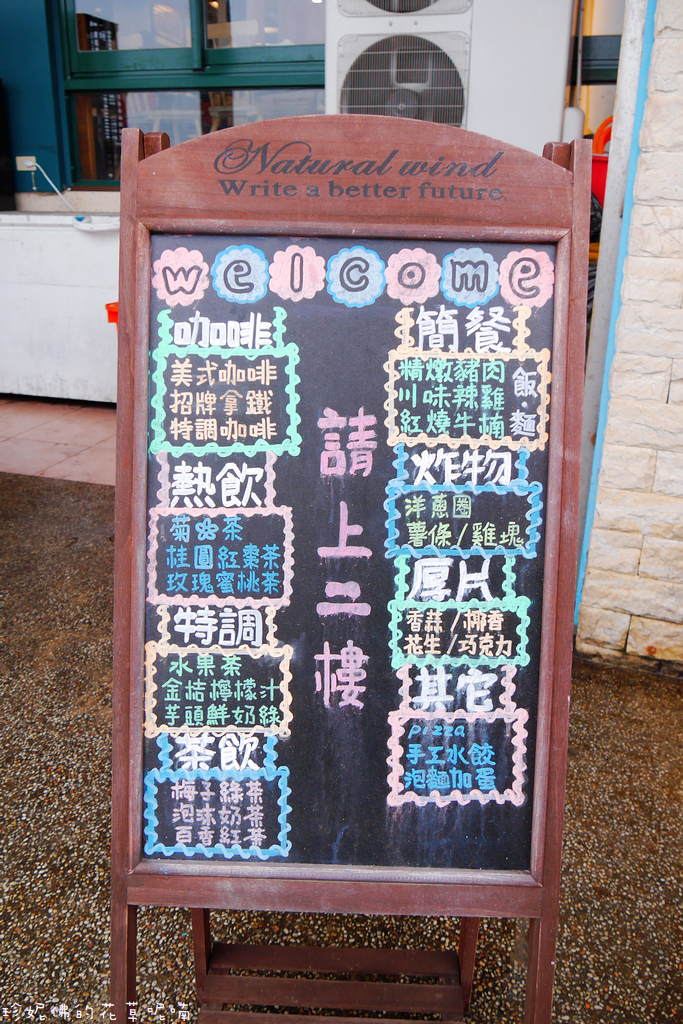 Natural wind
Write a better future
welcome
咖啡
美式咖啡
招牌拿鐵
特調咖啡
熱飲
菊花茶
桂圓紅棗茶
玫瑰蜜桃茶
特調
水果茶
金桔檸檬汁
芋頭鮮奶綠
茶飲
梅子綠茶
泡沫奶茶
百香紅茶
請上二樓
簡餐
精燉豬肉
川味辣雞
紅燒牛腩
飯麵
炸物
洋蔥圈
薯條/雞塊
厚片
香蒜/椰香
花生/巧克力
其它
pizza
手工水餃
泡麵加蛋
珍妮佛的花草呢喃